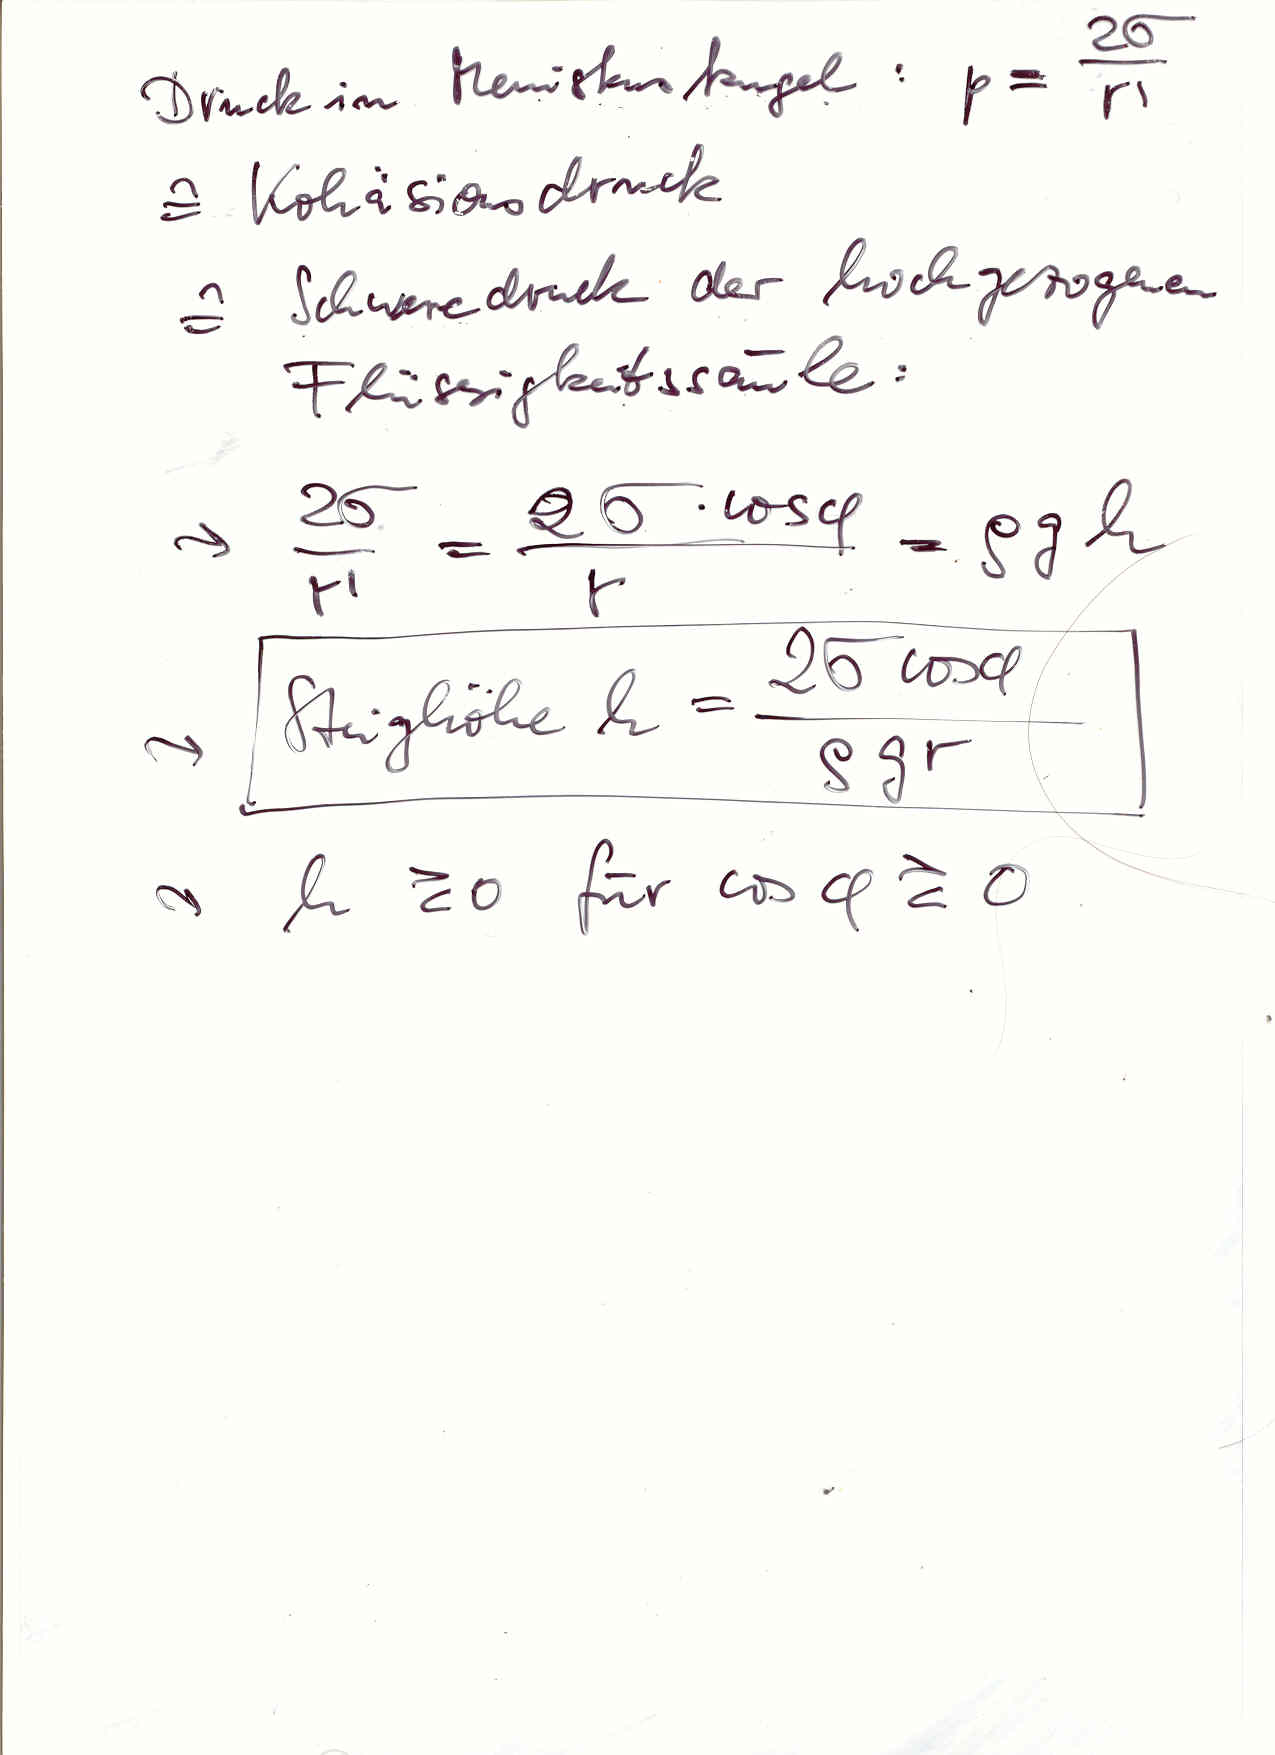 Druck in Meniskuskugel : p = 2σ/r'
≙ Kohäsionsdruck
≙ Schweredruck der hochgezogenen
Flüssigkeitssäule:
⇝ 2σ/r' = 2σ·cosφ/r = ρgh
⇝ Steighöhe h = 2σ cosφ/ρgr
⇝ h ≷ 0 für cos φ ≷ 0